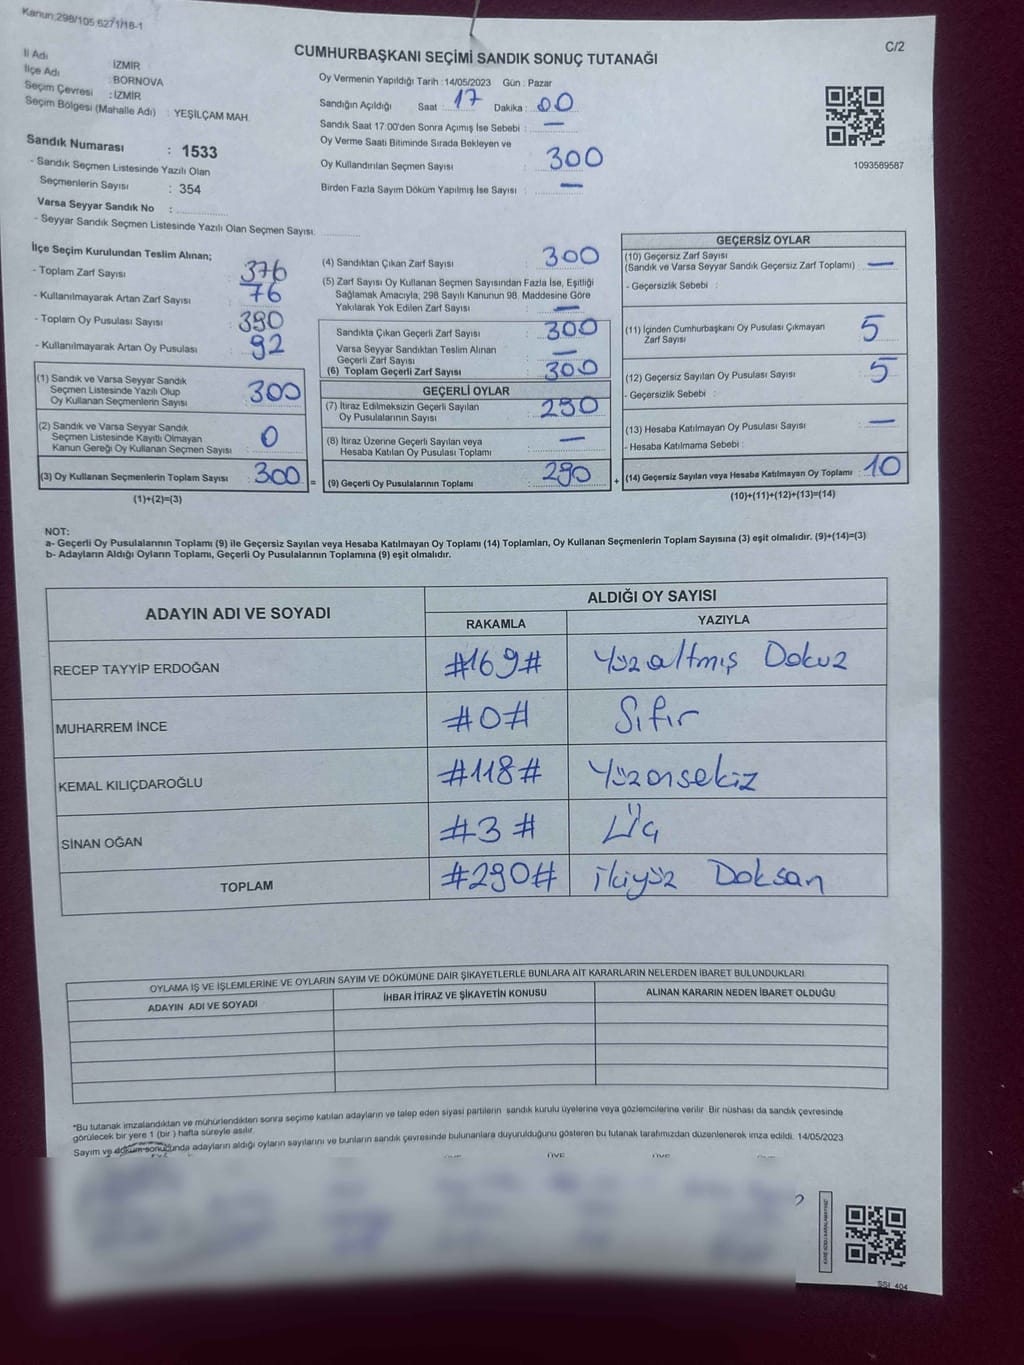 Kanun:298/105 6271/18-1
C/2
CUMHURBAŞKANI SEÇİMİ SANDIK SONUÇ TUTANAĞI
İl Adı İZMİR
İlçe Adı : BORNOVA
Seçim Çevresi : İZMİR
Seçim Bölgesi (Mahalle Adı) : YEŞİLÇAM MAH.
Sandık Numarası : 1533
- Sandık Seçmen Listesinde Yazılı Olan
Seçmenlerin Sayısı : 354
Varsa Seyyar Sandık No :
- Seyyar Sandık Seçmen Listesinde Yazılı Olan Seçmen Sayısı:
Oy Vermenin Yapıldığı Tarih : 14/05/2023 Gün : Pazar
Sandığın Açıldığı Saat : 17 Dakika : 00
Sandık Saat 17:00'den Sonra Açımış İse Sebebi : —
Oy Verme Saati Bitiminde Sırada Bekleyen ve
Oy Kullandırılan Seçmen Sayısı : 300
Birden Fazla Sayım Döküm Yapılmış İse Sayısı : —
1093589587
İlçe Seçim Kurulundan Teslim Alınan;
- Toplam Zarf Sayısı : 376
- Kullanılmayarak Artan Zarf Sayısı : 76
- Toplam Oy Pusulası Sayısı : 390
- Kullanılmayarak Artan Oy Pusulası : 92
(1) Sandık ve Varsa Seyyar Sandık
Seçmen Listesinde Yazılı Olup
Oy Kullanan Seçmenlerin Sayısı : 300
(2) Sandık ve Varsa Seyyar Sandık
Seçmen Listesinde Kayıtlı Olmayan
Kanun Gereği Oy Kullanan Seçmen Sayısı : 0
(3) Oy Kullanan Seçmenlerin Toplam Sayısı : 300 =
(1)+(2)=(3)
(4) Sandıktan Çıkan Zarf Sayısı : 300
(5) Zarf Sayısı Oy Kullanan Seçmen Sayısından Fazla İse, Eşitliği
Sağlamak Amacıyla, 298 Sayılı Kanunun 98. Maddesine Göre
Yakılarak Yok Edilen Zarf Sayısı : —
Sandıkta Çıkan Geçerli Zarf Sayısı : 300
Varsa Seyyar Sandıktan Teslim Alınan
Geçerli Zarf Sayısı : —
(6) Toplam Geçerli Zarf Sayısı : 300
GEÇERLİ OYLAR
(7) İtiraz Edilmeksizin Geçerli Sayılan
Oy Pusulalarının Sayısı : 290
(8) İtiraz Üzerine Geçerli Sayılan veya
Hesaba Katılan Oy Pusulası Toplamı : —
(9) Geçerli Oy Pusulalarının Toplamı : 290 +
GEÇERSİZ OYLAR
(10) Geçersiz Zarf Sayısı
(Sandık ve Varsa Seyyar Sandık Geçersiz Zarf Toplamı) : —
- Geçersizlik Sebebi :
(11) İçinden Cumhurbaşkanı Oy Pusulası Çıkmayan
Zarf Sayısı : 5
(12) Geçersiz Sayılan Oy Pusulası Sayısı : 5
- Geçersizlik Sebebi :
(13) Hesaba Katılmayan Oy Pusulası Sayısı : —
- Hesaba Katılmama Sebebi :
(14) Geçersiz Sayılan veya Hesaba Katılmayan Oy Toplamı : 10
(10)+(11)+(12)+(13)=(14)
NOT:
a- Geçerli Oy Pusulalarının Toplamı (9) ile Geçersiz Sayılan veya Hesaba Katılmayan Oy Toplamı (14) Toplamları, Oy Kullanan Seçmenlerin Toplam Sayısına (3) eşit olmalıdır. (9)+(14)=(3)
b- Adayların Aldığı Oyların Toplamı, Geçerli Oy Pusulalarının Toplamına (9) eşit olmalıdır.
ADAYIN ADI VE SOYADI ALDIĞI OY SAYISI
RAKAMLA YAZIYLA
RECEP TAYYİP ERDOĞAN #169# Yüzaltmış Dokuz
MUHARREM İNCE #0# Sıfır
KEMAL KILIÇDAROĞLU #118# Yüzonsekiz
SİNAN OĞAN #3# Üç
TOPLAM #290# ikiyüz Doksan
OYLAMA İŞ VE İŞLEMLERİNE VE OYLARIN SAYIM VE DÖKÜMÜNE DAİR ŞİKAYETLERLE BUNLARA AİT KARARLARIN NELERDEN İBARET BULUNDUKLARI
ADAYIN ADI VE SOYADI İHBAR İTİRAZ VE ŞİKAYETİN KONUSU ALINAN KARARIN NEDEN İBARET OLDUĞU
*Bu tutanak imzalandıktan ve mühürlendikten sonra seçime katılan adayların ve talep eden siyasi partilerin sandık kurulu üyelerine veya gözlemcilerine verilir. Bir nüshası da sandık çevresinde
görülecek bir yere 1 (bir) hafta süreyle asılır.
Sayım ve döküm sonucunda adayların aldığı oyların sayılarını ve bunların sandık çevresinde bulunanlara duyurulduğunu gösteren bu tutanak tarafımızdan düzenlenerek imza edildi. 14/05/2023
ÜYE
SSI_404